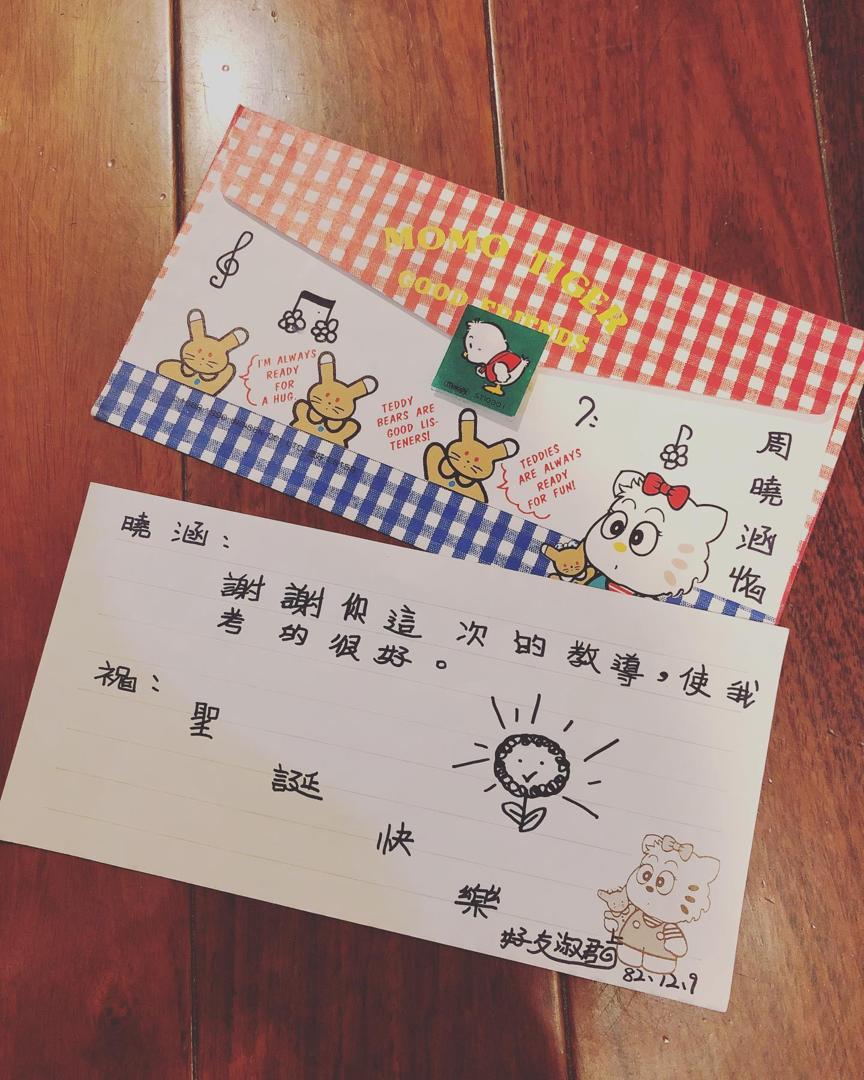 MOMO TIGER
GOOD FRIENDS
I'M ALWAYS
READY
FOR
A HUG.
TEDDY
BEARS ARE
GOOD LIS-
TENERS!
TEDDIES
ARE ALWAYS
READY
FOR FUN!
周曉涵
曉涵：
謝謝你這次的教導，使我
考的很好。
祝：
聖
誕
快
樂
好友淑君
82.12.9